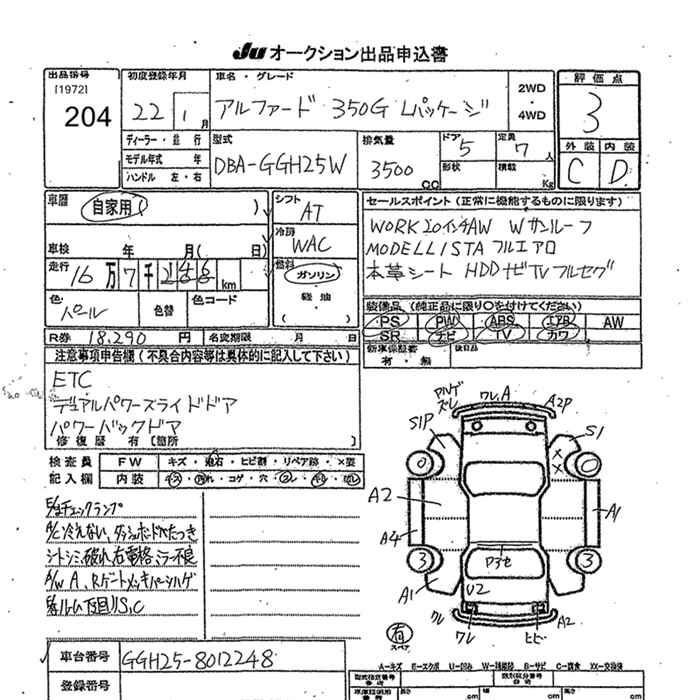 JU オークション出品申込書
出品番号 初度登録年月 車名・グレード 2WD・4WD 評価点
[1972]
204 22 1月 アルファード 350G Lパッケージ 3
ディーラー・並行 型式 排気量 ドア 定員 外装 内装
モデル年式 年 DBA-GGH25W 3500cc 5 7人 C D
ハンドル 左・右 形状 積載 Kg
車歴 自家用( ) シフト AT セールスポイント(正常に機能するものに限ります)
冷房 WAC WORK 20インチAW Wサンルーフ
車検 年 月( 日) MODELLISTA フルエアロ
走行 16万7千 km 燃料 ガソリン 本革シート HDDナビTVフルセグ
軽油
色 パール 色替 色コード ( ) 装備品(純正品に限り○を付けてください)
PS PW ABS エアB AW
R券 18,290円 名変期限 月 日 SR ナビ TV カワ
注意事項申告欄(不具合内容等は具体的に記入して下さい) 新車保証書 有・無 後日品
ETC
デュアルパワースライドドア
パワーバックドア
修復歴 有 [箇所 ]
検査員 FW キズ・飛石・ヒビ割・リペア跡・×要
記入欄 内装 キズ・汚れ・コゲ・穴
アルゲ ズレ ワレ.A A2P
S1P S1
A2 A1
A4
3 3
A1 U2 A2
ワレ ワレ ヒビ
有
スペア
A/C冷えない、ダッシュボードベタつき
シートシミ、破れ、右電格ミラー不良
A/W A、Rゲートメッキパーツハゲ
車台番号 GGH25-8012248
登録番号
A−キズ E−エクボ U−凹み W−補修跡 S−サビ C−腐食 XX−交換済
型式指定番号 類別区分番号
長さ cm 幅 cm 高さ cm